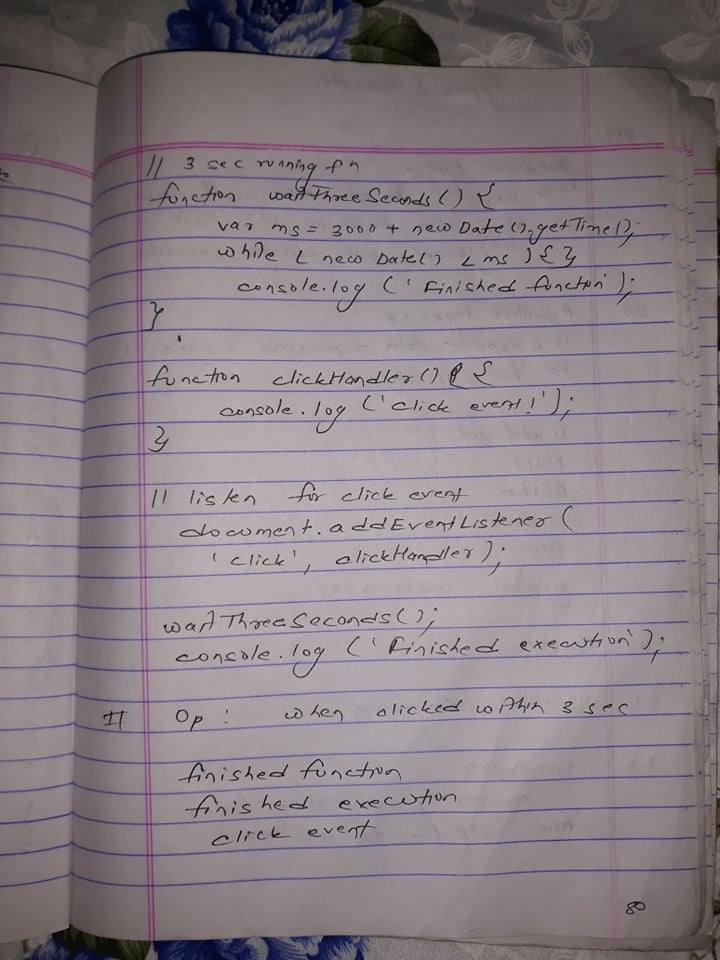 // 3 sec running fn
function waitThreeSeconds() {
var ms = 3000 + new Date().getTime();
while ( new Date() < ms ) { }
console.log (' Finished function');
}
function clickHandler() {
console.log ('click event!');
}
// listen for click event
document.addEventListener (
'click', clickHandler);
waitThreeSeconds();
console.log ('Finished execution');
II Op : when clicked within 3 sec
finished function
finished execution
click event
80